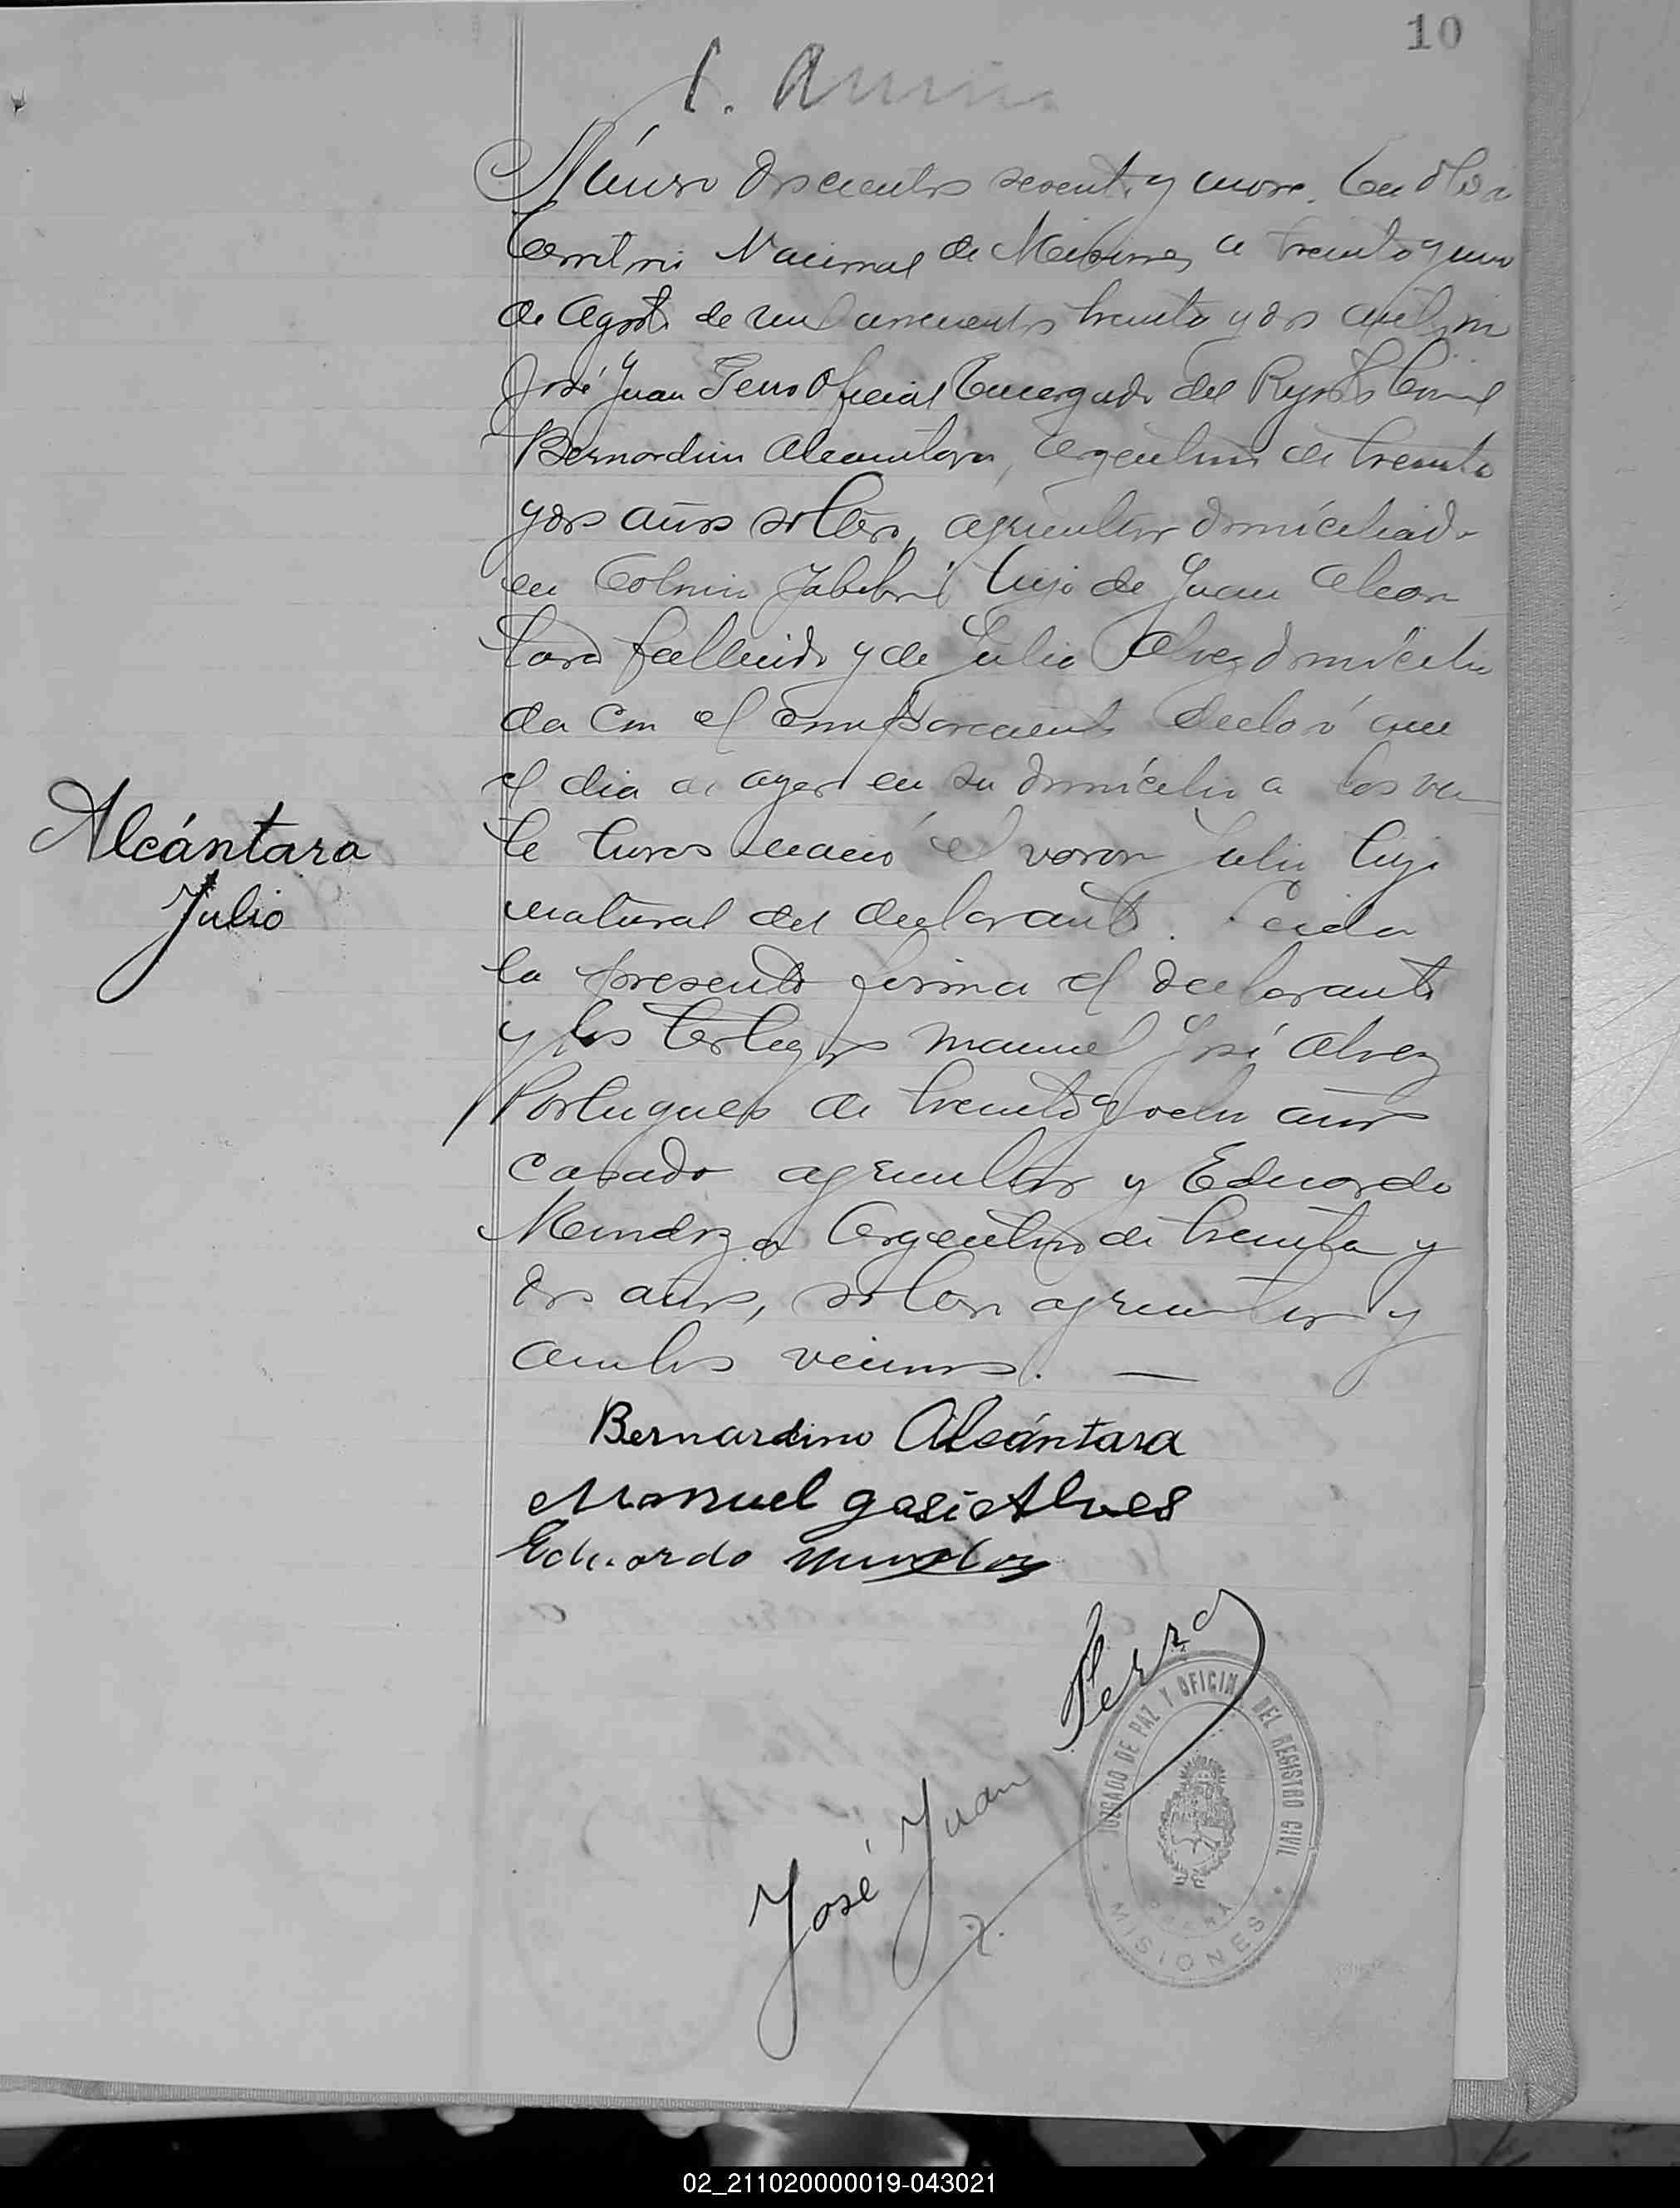 10
Número doscientos sesenta y nueve. En Oberá
Territorio Nacional de Misiones a treinta y uno
de Agosto de mil novecientos treinta y dos ante mi
José Juan Ferro Oficial Encargado del Registro Civil
Bernardino Alcantara, argentino de treinta
y dos años soltero, agricultor domiciliado
en Colonia Yabebirí hijo de Juan Alcan
tara fallecido y de Julia Alvez domicilia
da con el compareciente declaró que
el dia de ayer en su domicilio a las vein
te horas nació el varon Julio hijo
natural del declarante. Leida
la presente firma el declarante
y los testigos Manuel José Alvez
Portugues de treinta y ocho años
casado agricultor y Eduardo
Mendoza Argentino de treinta y
dos años, soltero agricultor y
ambos vecinos. —
Alcántara
Julio
Bernardino Alcántara
Manuel gosi Alves
Eduardo
José Juan Ferro
JUZGADO DE PAZ Y OFICINA DEL REGISTRO CIVIL
OBERÁ
MISIONES
02_211020000019-043021